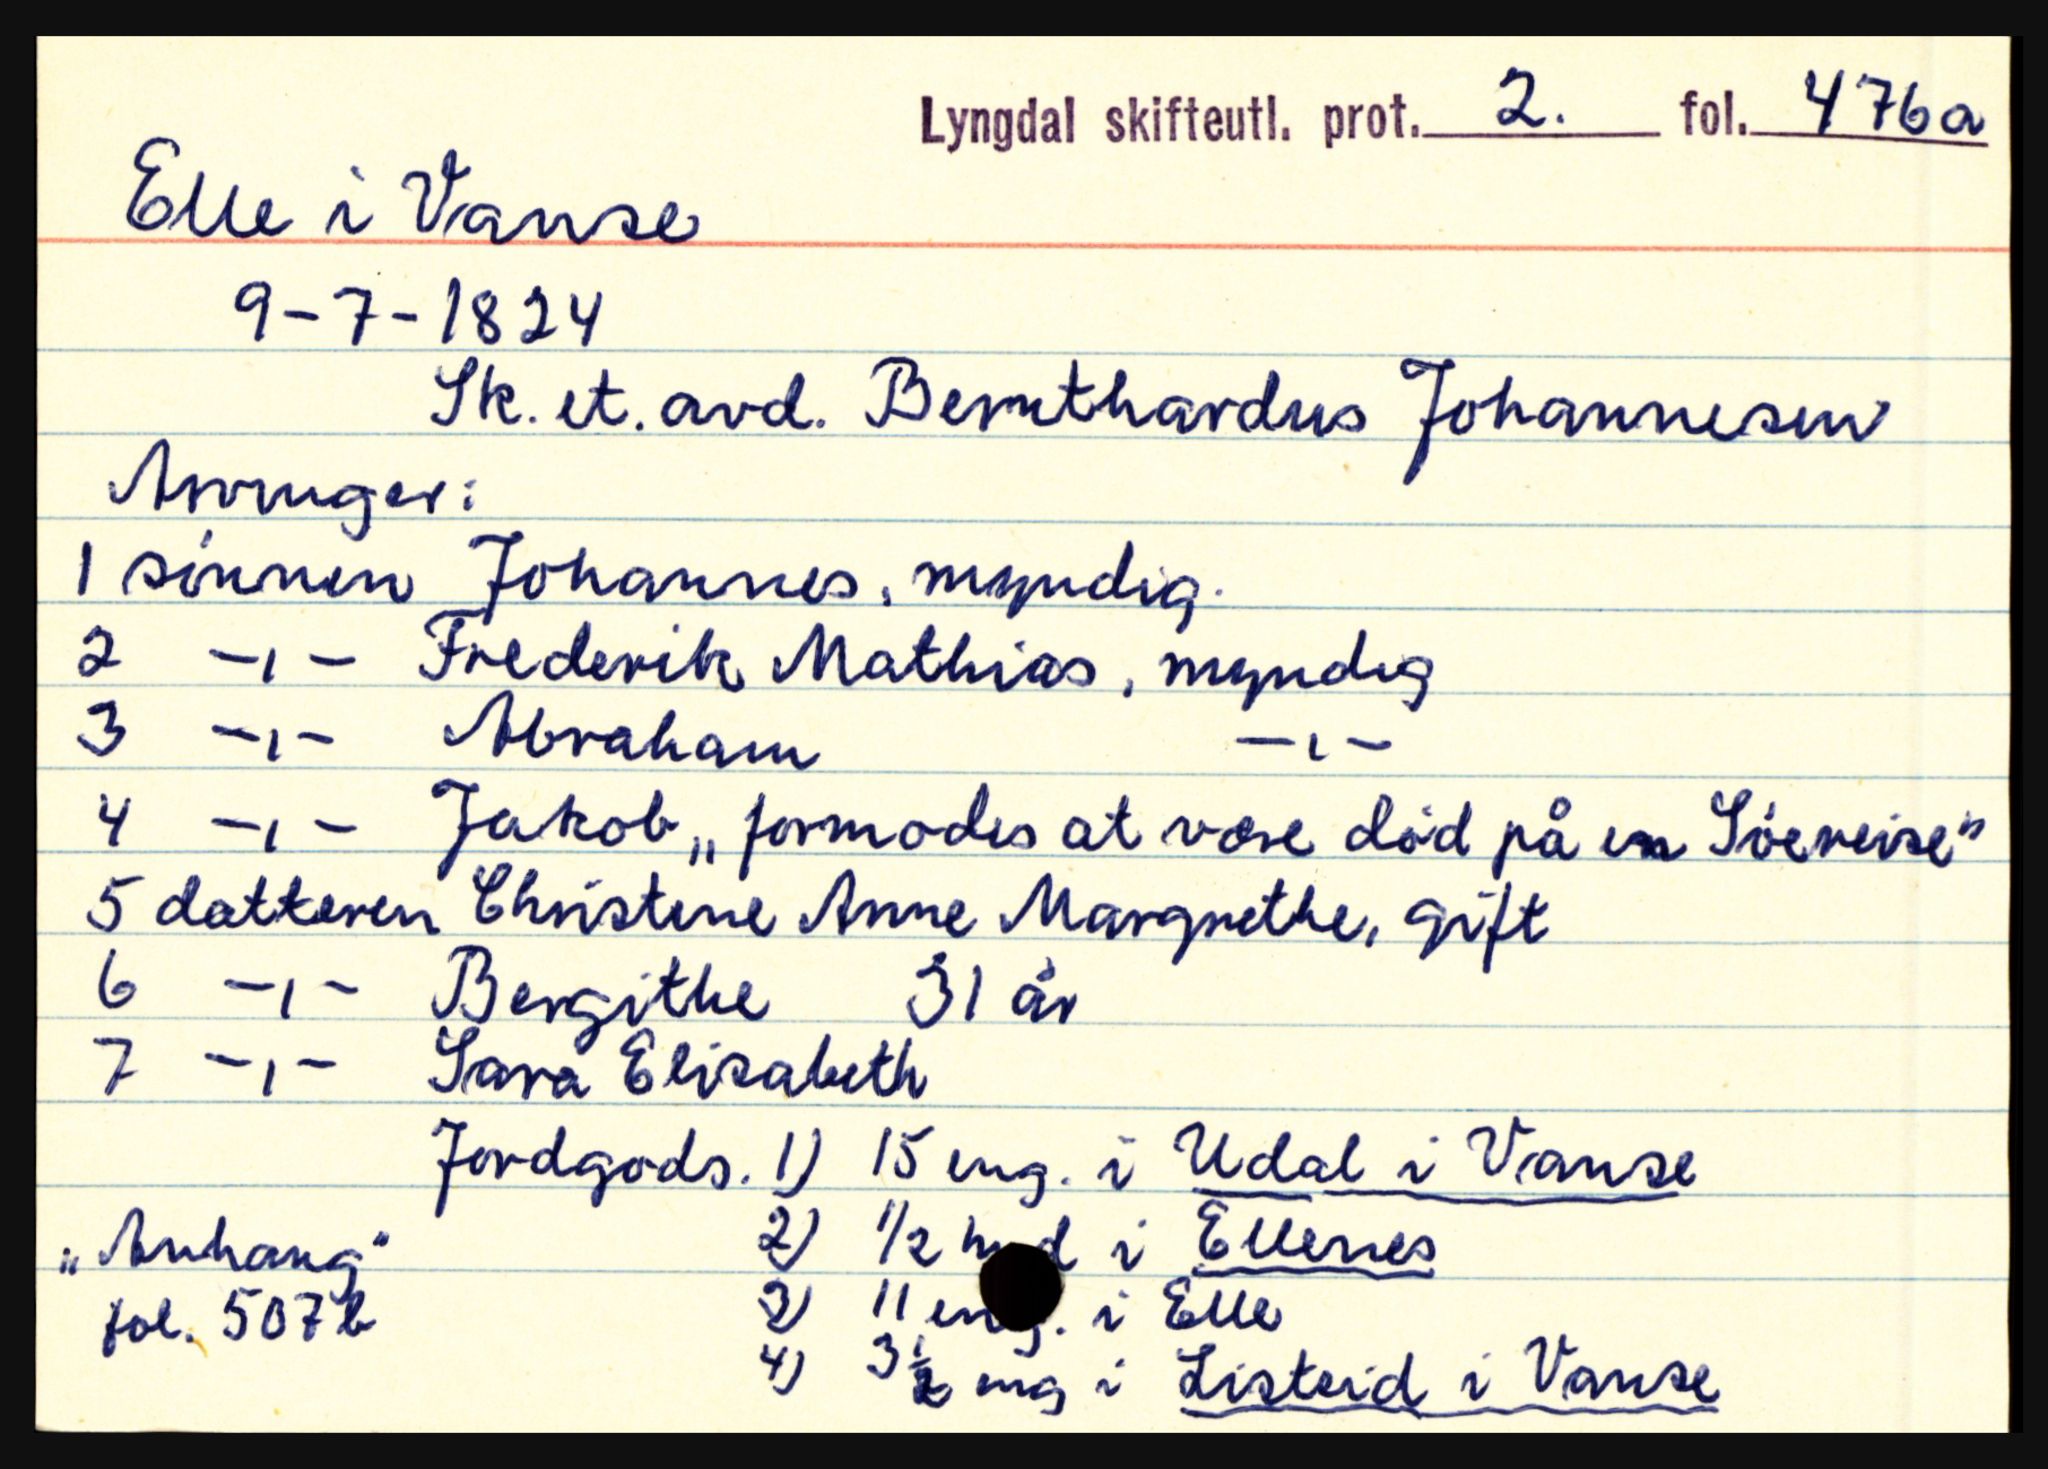 Lyngdal skifteutl. prot. 2. fol. 476a
Elle i Vanse
9-7-1824
Sk. et. avd. Bernthardus Johannesen
Arvinger:
1 sønnen Johannes, myndig.
2 -,- Frederik Mathias, myndig
3 -,- Abraham -,-
4 -,- Jakob „formodes at være død på en Søereise"
5 datteren Christine Anne Margrethe, gift
6 -,- Bergithe 31 år
7 -,- Sara Elisabeth
Jordgods. 1) 15 eng. i Udal i Vanse
2) 1/2 hud i Ellenes
3) 11 eng. i Elle
4) 3 1/2 eng i Listeid i Vanse
„Anhang"
fol. 507b